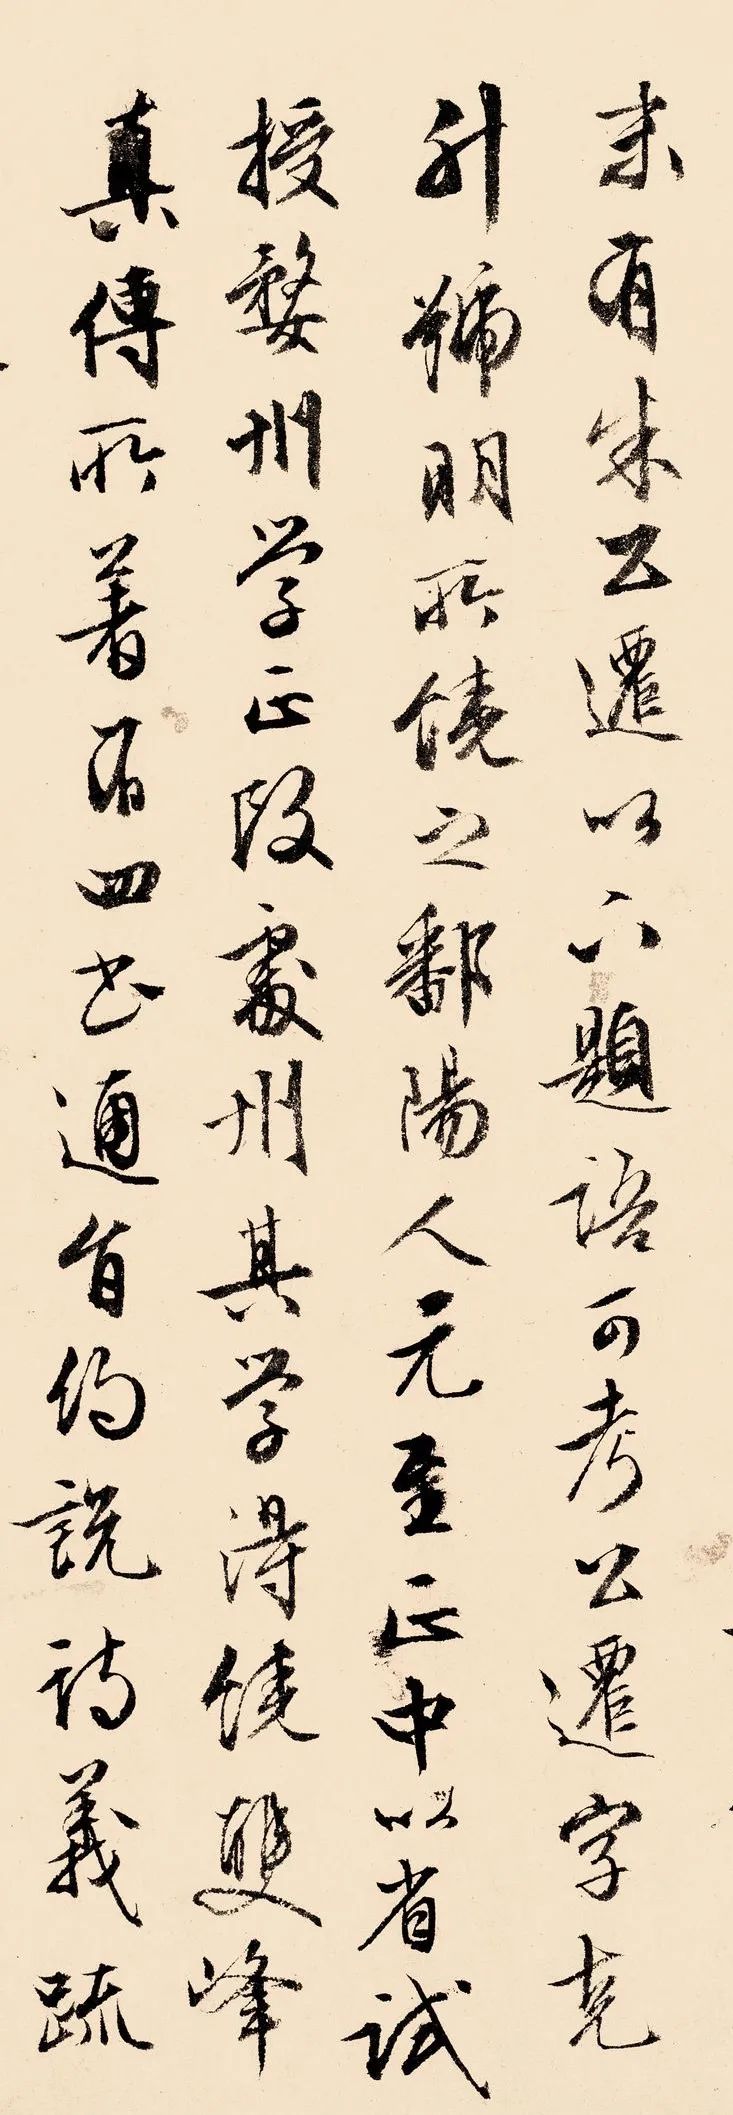 末有朱公遷以下題語可考公遷字克
升號明所饒之鄱陽人元至正中以省試
授婺州学正改處州其学得饒雙峰
真傳所著有四书通旨約說詩義疏